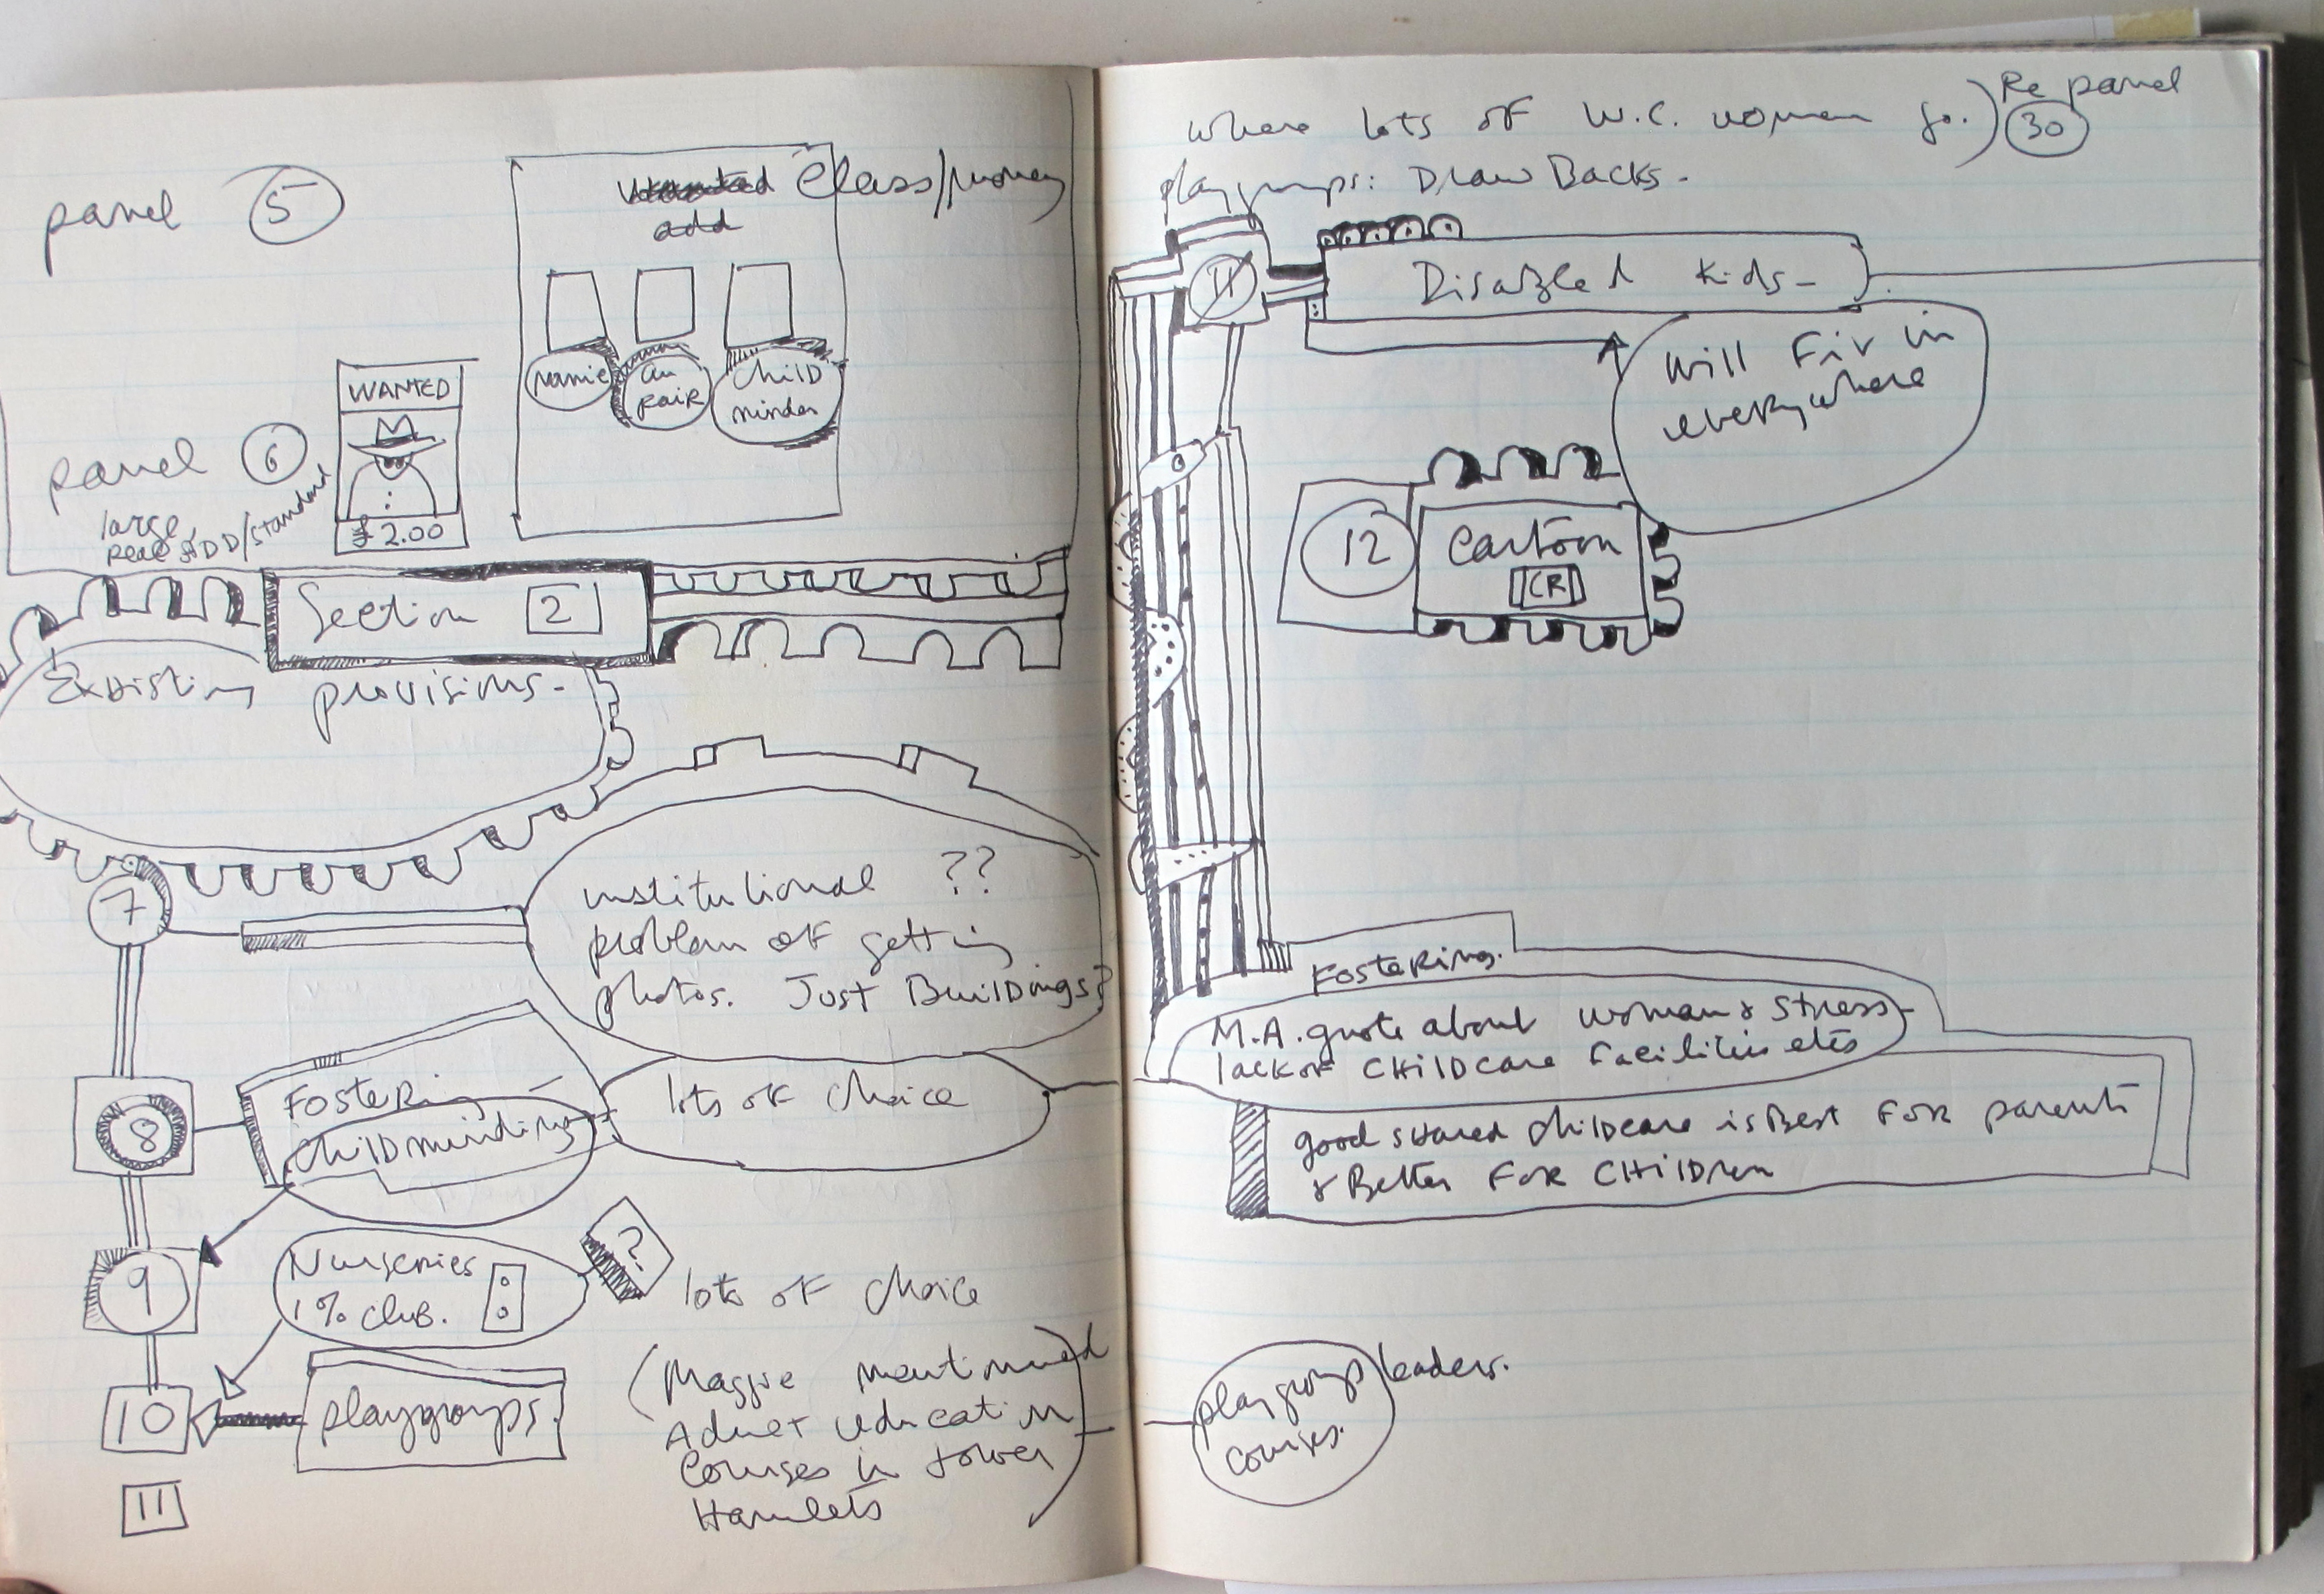 panel 5
add
Class/money
nanie
au
pair
child
minder
panel 6
large
WANTED
£2.00
Section 2
Existing provisions-
7
institutional ??
problem of getting
photos. Just Buildings?
8
Fostering -
childminding
lots of choice
9
Nurseries
1% club.
?
lots of choice
10
playgroups.
(Maggie mentioned
Adult education
Courses in tower
Hamlets
11
where lots of W.C. women go.)
Re panel
30
playgroups: DrawBacks-
11
Disabled kids-
Will Fix in
everywhere
12
Cartoon
CR
Fostering.
M.A. quote about woman & stress-
lack of CHILDcare Facilities etc
good shared childcare is Best For parents
& Better For CHILDren
playgroup leaders.
courses.